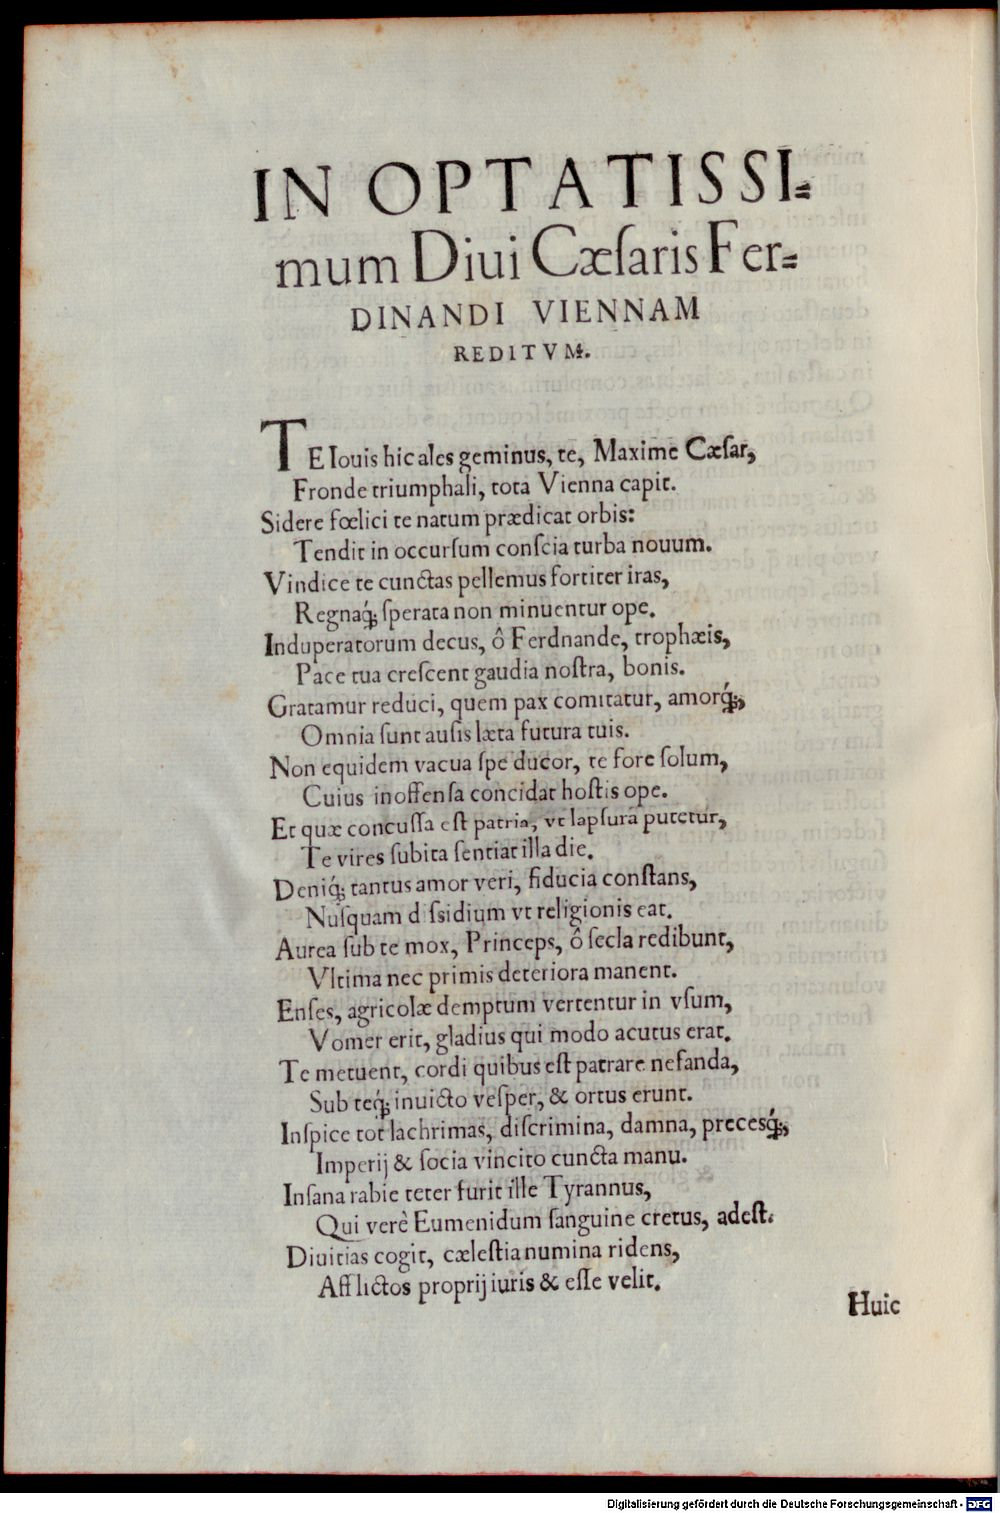 IN OPTATISSI=
mum Diui Cæſaris Fer=
DINANDI VIENNAM
REDITVM.
TE Iouis hic ales geminus, te, Maxime Cæſar,
Fronde triumphali, tota Vienna capit.
Sidere fœlici te natum prædicat orbis:
Tendit in occurſum conſcia turba nouum.
Vindice te cunctas pellemus fortiter iras,
Regnaq́; ſperata non minuentur ope.
Induperatorum decus, ô Ferdnande, trophæis,
Pace tua creſcent gaudia noſtra, bonis.
Gratamur reduci, quem pax comitatur, amorq́;,
Omnia ſunt auſis læta futura tuis.
Non equidem vacua ſpe ducor, te fore ſolum,
Cuius inoffenſa concidat hoſtis ope.
Et quæ concuſſa eſt patria, vt lapſura putetur,
Te vires ſubita ſentiat illa die.
Deniq́; tantus amor veri, fiducia conſtans,
Nuſquam diſsidium vt religionis eat.
Aurea ſub te mox, Princeps, ô ſecla redibunt,
Vltima nec primis deteriora manent.
Enſes, agricolæ demptum vertentur in vſum,
Vomer erit, gladius qui modo acutus erat.
Te metuent, cordi quibus eſt patrare nefanda,
Sub teq́; inuicto veſper, & ortus erunt.
Inſpice tot lachrimas, diſcrimina, damna, precesq́;,
Imperij & ſocia vincito cuncta manu.
Inſana rabie teter furit ille Tyrannus,
Qui verè Eumenidum ſanguine cretus, adeſt.
Diuitias cogit, cæleſtia numina ridens,
Afflictos proprij iuris & eſſe velit.
Huic
Digitalisierung gefördert durch die Deutsche Forschungsgemeinschaft - DFG